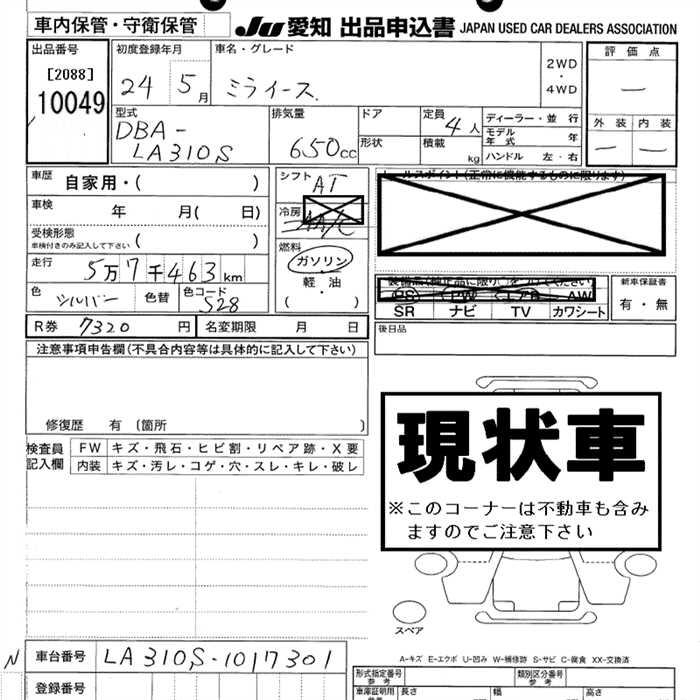 車内保管・守衛保管 JU 愛知 出品申込書 JAPAN USED CAR DEALERS ASSOCIATION
出品番号 初度登録年月 車名・グレード 評価点
[2088] 24 5月 ミライース 2WD・4WD ー
10049
型式 排気量 ドア 定員 ディーラー・並行 外装 内装
DBA- 4人 モデル年式 年 ー ー
LA310S 650cc 形状 積載 kg ハンドル 左・右
車歴 自家用・( ) シフト AT セールスポイント(正常に機能するものに限ります)
車検 年 月( 日) 冷房 AA/C
受検形態
車検付きのみ記入して下さい ( ) 燃料
ガソリン
走行 5万7千463km 軽・油 新車保証書
色 シルバー 色替 色コード S28 ( ) PS PW エアB AW 有・無
SR ナビ TV カワシート
R券 7320円 名変期限 月 日 後日品
注意事項申告欄(不具合内容等は具体的に記入して下さい)
修復歴 有 〔箇所 〕
現状車
検査員 FW キズ・飛石・ヒビ割・リペア跡・X要
記入欄 内装 キズ・汚レ・コゲ・穴・スレ・キレ・破レ
※このコーナーは不動車も含み
ますのでご注意下さい
スペア
N 車台番号 LA310S-1017301
A-キズ E-エクボ U-凹み W-補修跡 S-サビ C-腐食 XX-交換済
登録番号 形式指定番号 参考 類別区分番号 参考
車庫証明用 長さ 幅 高さ